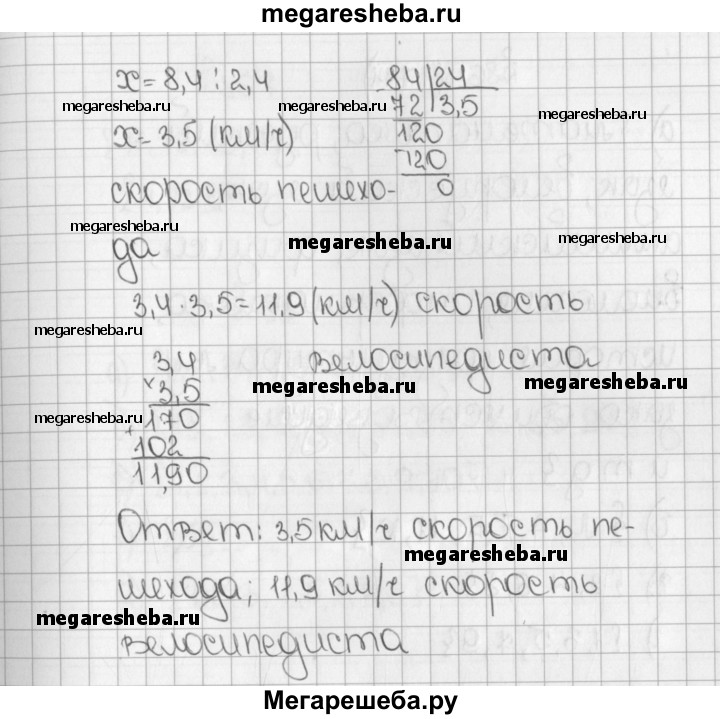 megaresheba.ru
x = 8,4 : 2,4
84 24
megaresheba.ru megaresheba.ru 72 3,5 megaresheba.ru
x = 3,5 (км/ч) 120
-120
скорость пешехо- 0
megaresheba.ru megaresheba.ru megaresheba.ru
да
3,4 · 3,5 = 11,9 (км/ч) скорость
megaresheba.ru
3,4 велосипедиста
× 3,5 megaresheba.ru megaresheba.ru
megaresheba.ru + 170
102
11,90
Ответ: 3,5 км/ч скорость пе-
megaresheba.ru
шехода; 11,9 км/ч скорость
megaresheba.ru
велосипедиста
Мегарешеба.ру